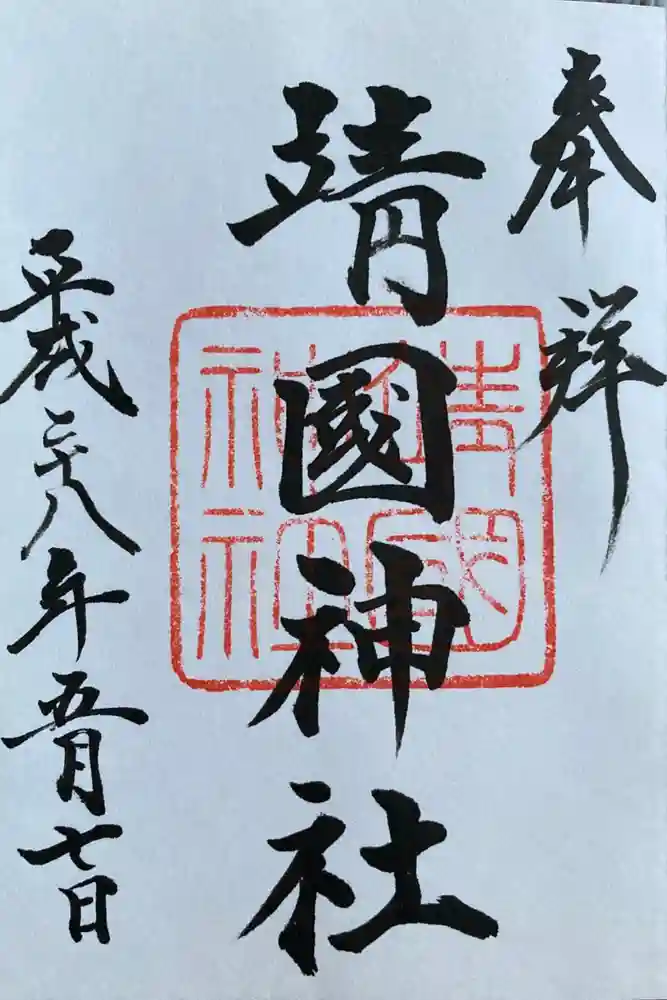 奉拝
靖國神社
平成二十八年五月七日
靖國
神社